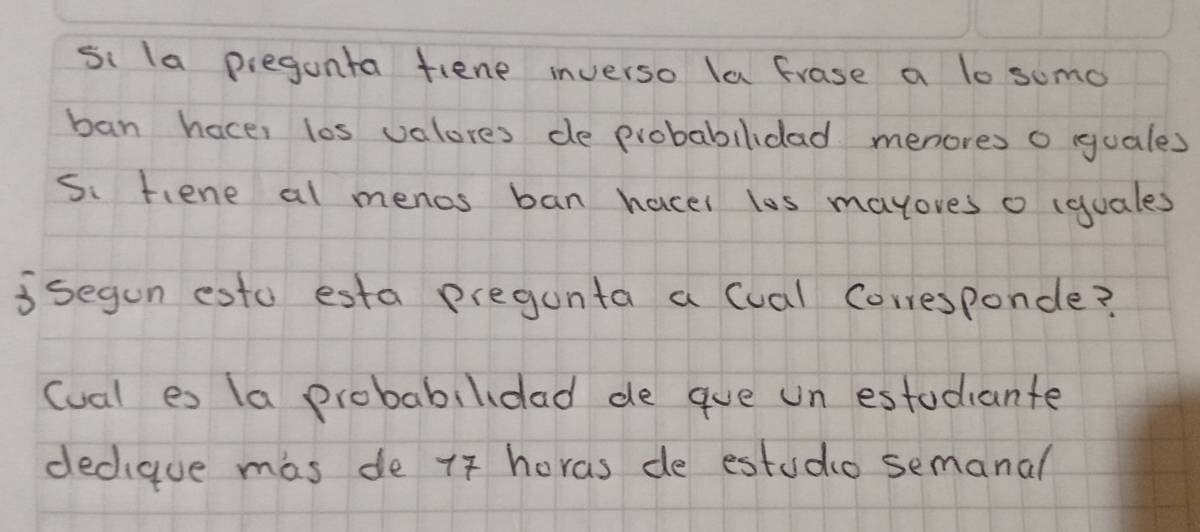 Si la pregunta tiene inverso la frase a lo sumo
ban hacer los valores de probabilidad menores o iguales
Si tiene al menos ban hacer los mayores o iguales
¿Segun esto esta pregunta a cual corresponde?
Cual es la probabilidad de que un estudiante
dedique más de 17 horas de estudio semanal